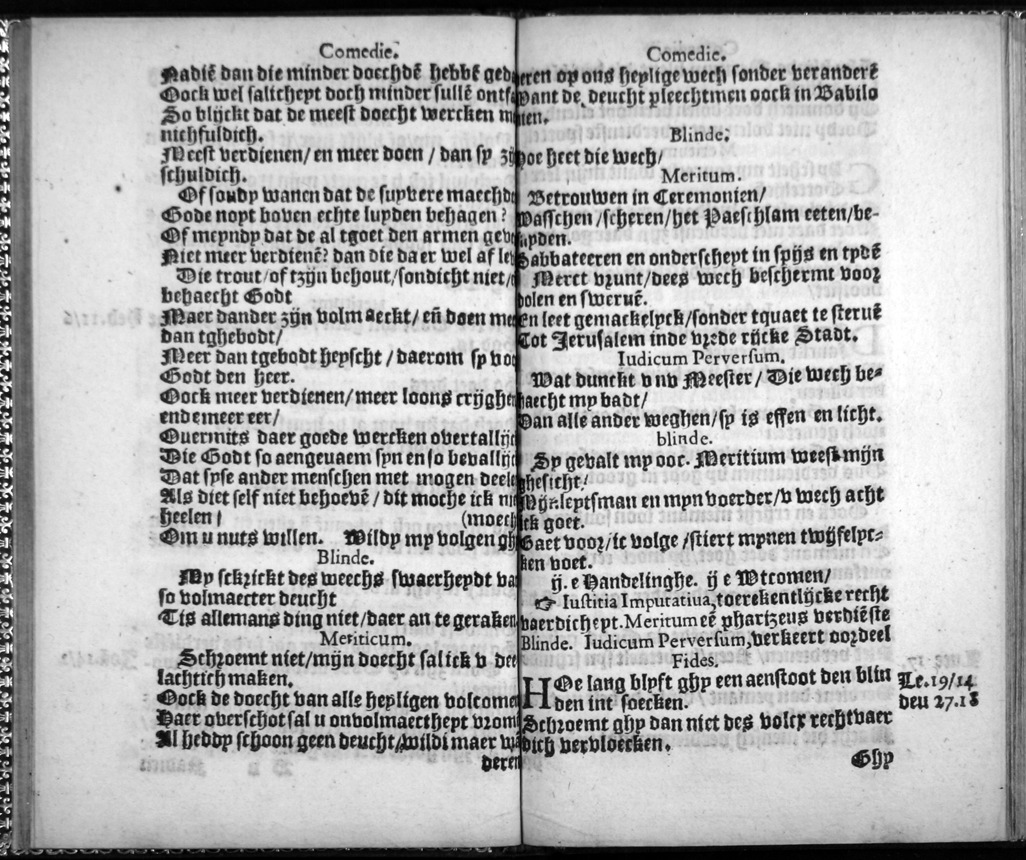 Comedie.
Nadiē dan die minder doechdē hebbē ged
Oock wel salicheyt doch minder sullē ontfa
So blijckt dat de meest doecht wercken m
nichfuldich.
Meest verdienen/ en meer doen / dan sy zij
schuldich.
Of soudy wanen dat de suyvere maechd
Gode noyt boven echte luyden behagen ?
Of meyndy dat de al tgoet den armen geve
Niet meer verdienē? dan die daer wel af le
Die trout/of tzijn behout/sondicht niet/
behaecht Godt
Maer dander zijn volmaeckt/ eñ doen mee
dan tghebodt/
Meer dan tgebodt heyscht / daerom sy voo
Godt den heer.
Oock meer verdienen/meer loons crijghen
ende meer eer/
Overmits daer goede wercken overtallijc
Die Godt so aengevaem syn en so bevallijc
Dat syse ander menschen met mogen deele
Als diet self niet behoevē / dit moche ick ni
heelen / (moech
Om u nuts willen. Wildy my volgen gh
Blinde.
My schrickt des weechs swaerheydt va
so volmaecter deucht
Tis allemans ding niet/daer an te geraken
Meriticum.
Schroemt niet/mijn doecht salick v dee
lachtich maken.
Oock de doecht van alle heyligen volcomen
Haer overschot sal u onvolmaectheyt vrom
Al heddy schoon geen deucht/wildi maer wa
deren
Comedie.
eren op ons heylige wech sonder veranderē
Want de deucht pleechtmen oock in Babilo
nien.
Blinde.
hoe heet die wech/
Meritum.
Betrouwen in Ceremonien/
Wasschen/scheren/het Paeschlam eeten/be-
snyden.
Sabbateeren en onderscheyt in spijs en tydē
Merct vrunt/dees wech beschermt voor
dolen en swervē.
En leet gemackelyck/sonder tquaet te stervē
Tot Jerusalem inde vrede rijcke Stadt.
Iudicum Perversum.
Wat dunckt vnv Meester/ Die wech be-
haecht my badt/
Dan alle ander weghen/sy is effen en licht.
blinde.
Sy gevalt my ooc. Meritium weest mijn
ghesicht/
Mijn leytsman en myn voerder/v wech acht
ick goet.
Gaet voor/ic volge /stiert mynen twijfelyc-
ken voet.
ij. e Handelinghe. ij e Wtcomen/
☞ Iustitia Imputatiua, toerekentlijcke recht
vaerdicheyt. Meritum eē pharizeus verdiēste
Blinde. Iudicum Perversum, verkeert oordeel
Fides.
HOe lang blyft ghy een aenstoot den blin
den int soecken. Le.19/14
deu 27.18
Schroemt ghy dan niet des volcx rechtvaer
dich vervloecken.
Ghy